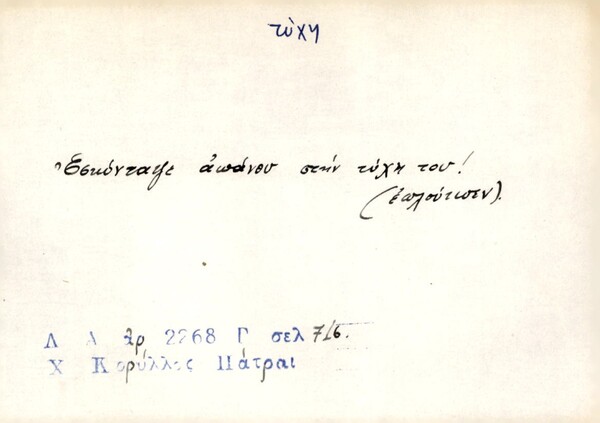 τύχη
Ἐσκόνταψε ἀπάνου στὴν τύχη του!
(ἐπλούτισεν).
Λ Α ἀρ 2268 Γ σελ 716.
Χ Κορύλλος Πάτραι